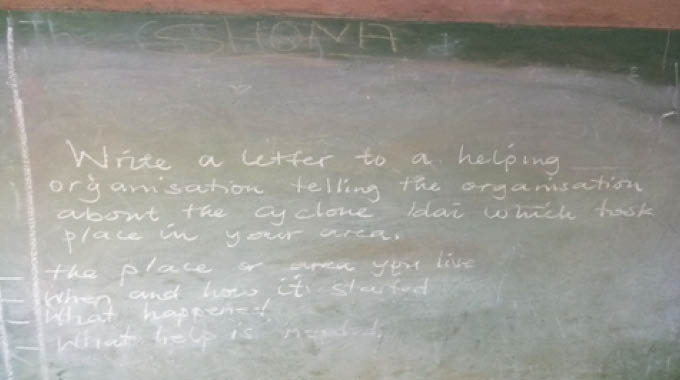 Th SHONA
Write a letter to a helping
organisation telling the organisation
about the cyclone Idai which took
place in your area.
the place or area you live
When and how it started
What happened
What help is needed